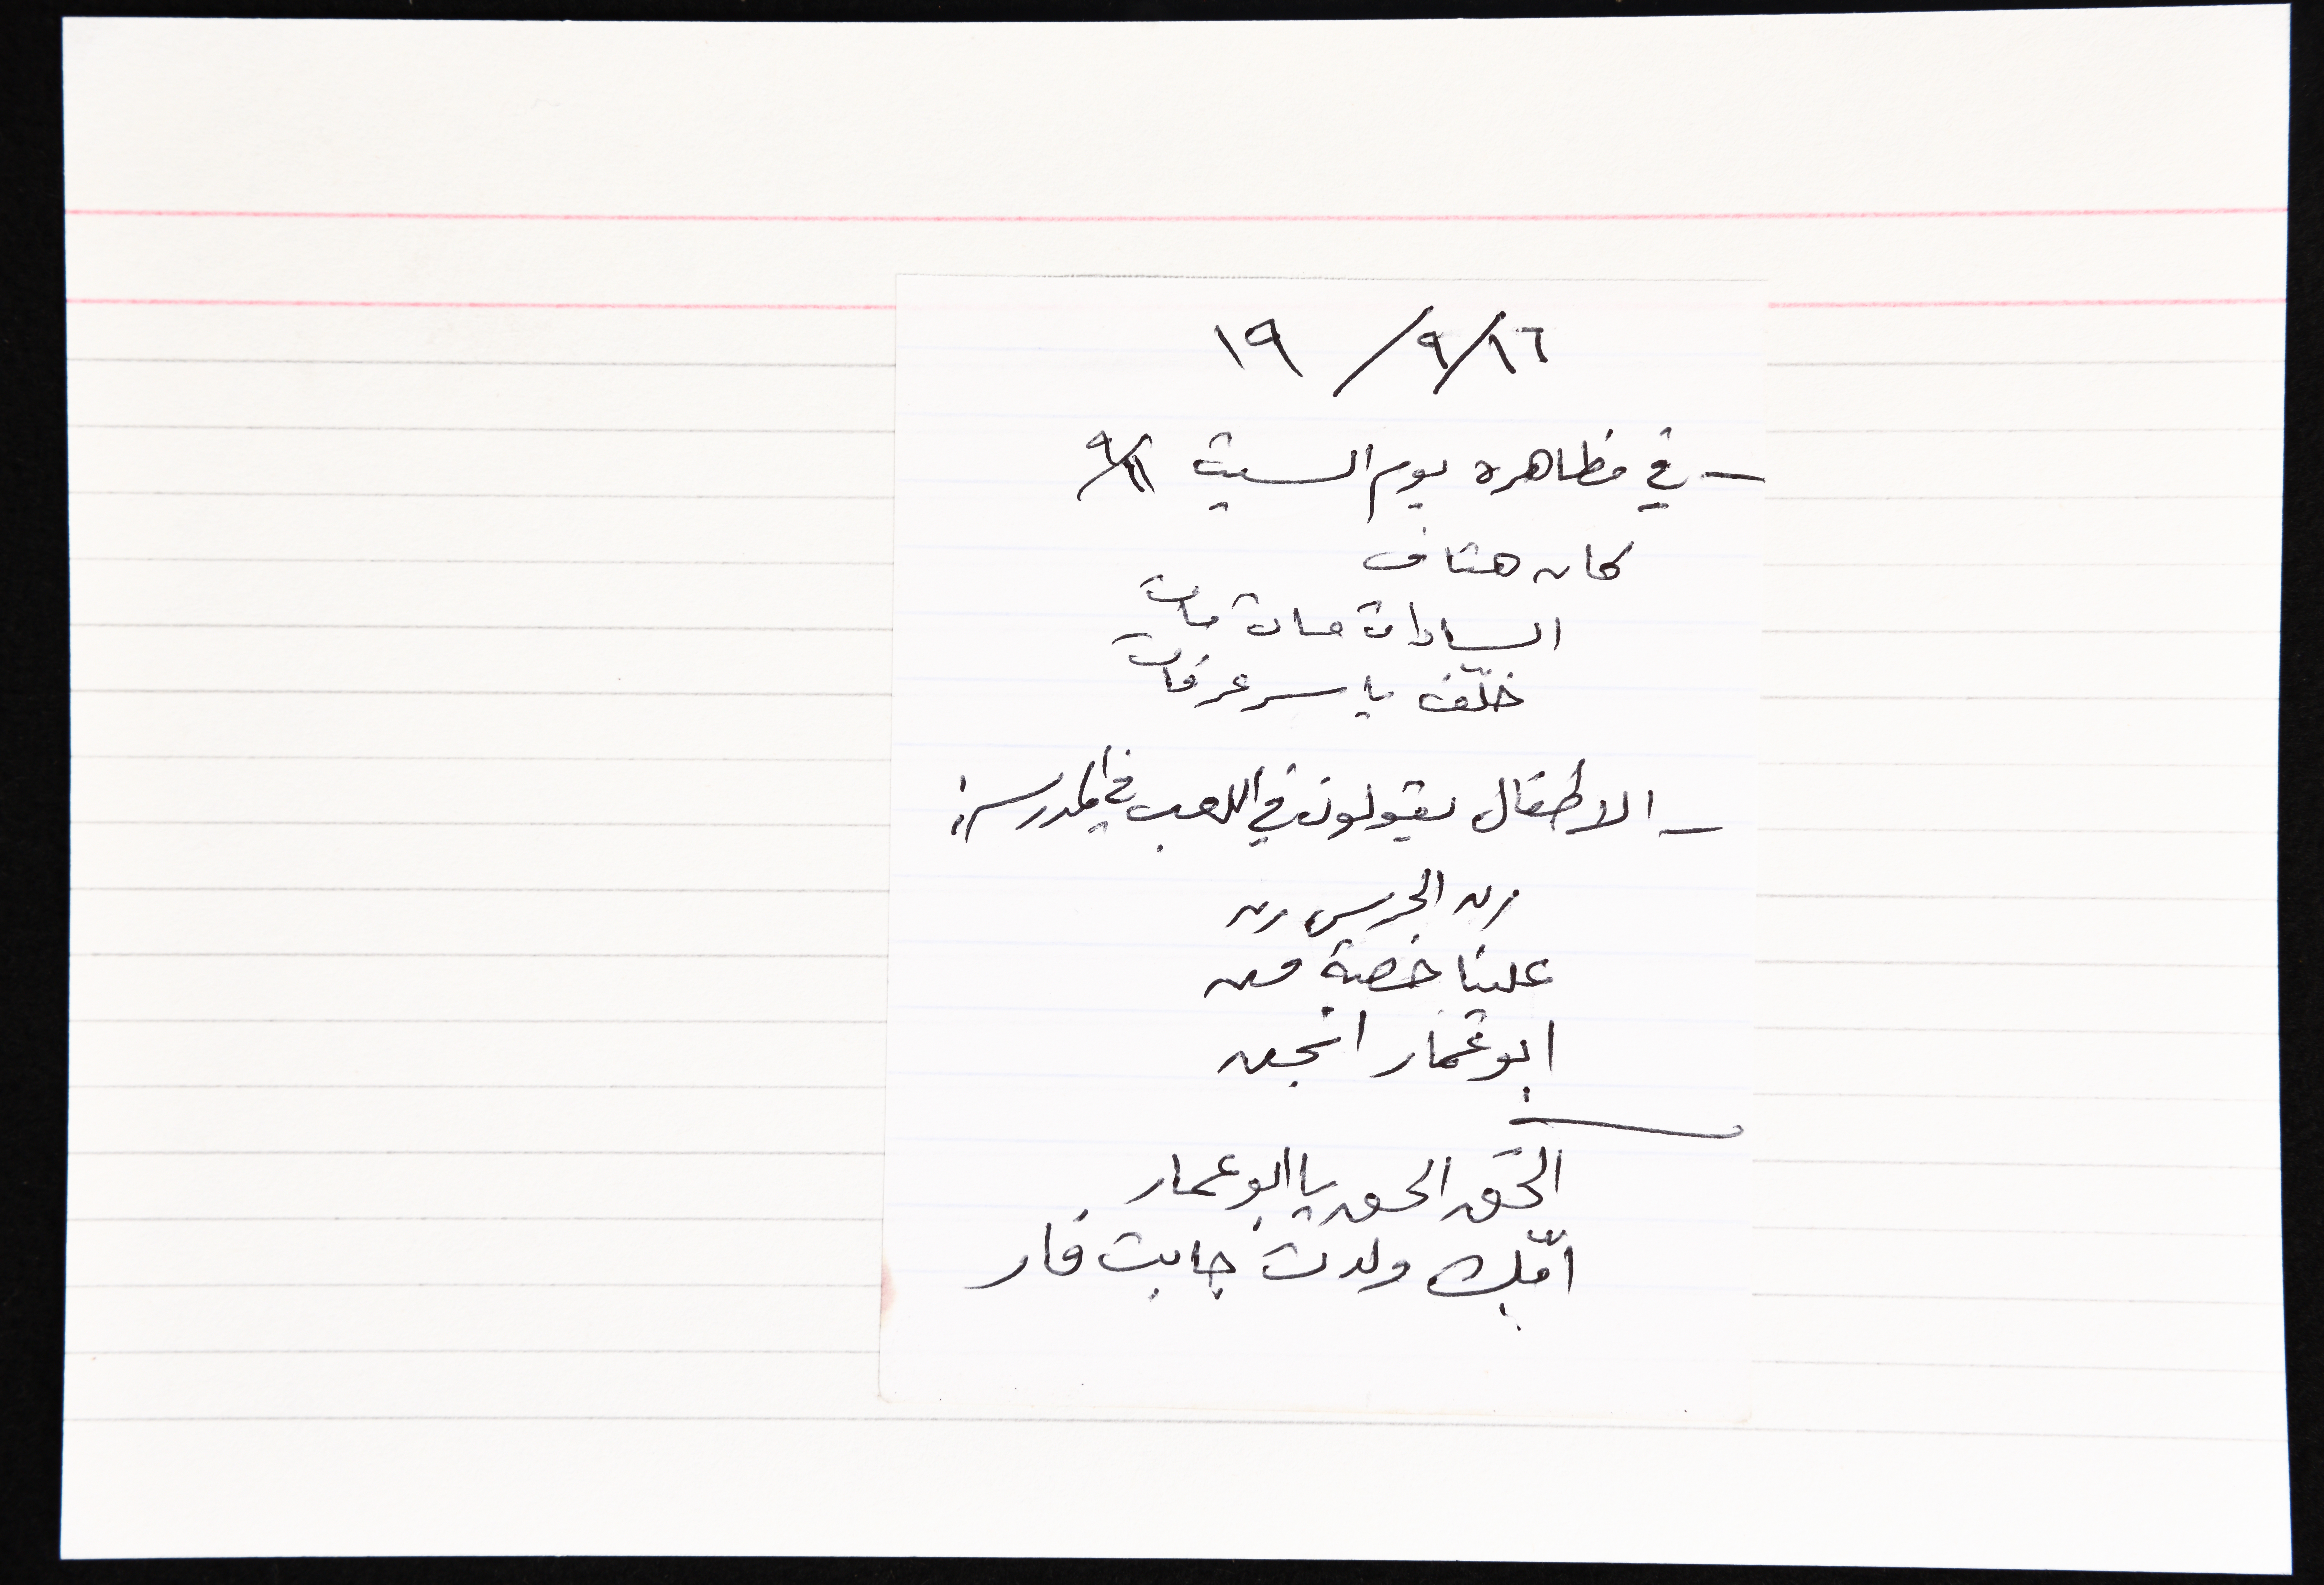 ١٩ / ٩ / ١٦
— في مظاهرة يوم السبت ٩/١١
كان هتاف
السادات مات مات
خلّف ياسر عرفات
— الاطفال يقولون في اللعب في المدرسة:
رن الجرس رن
علينا خصبة من
ابو عمار انجن
الحق الحق يا ابو عمار
امّك ولدت جابت فار